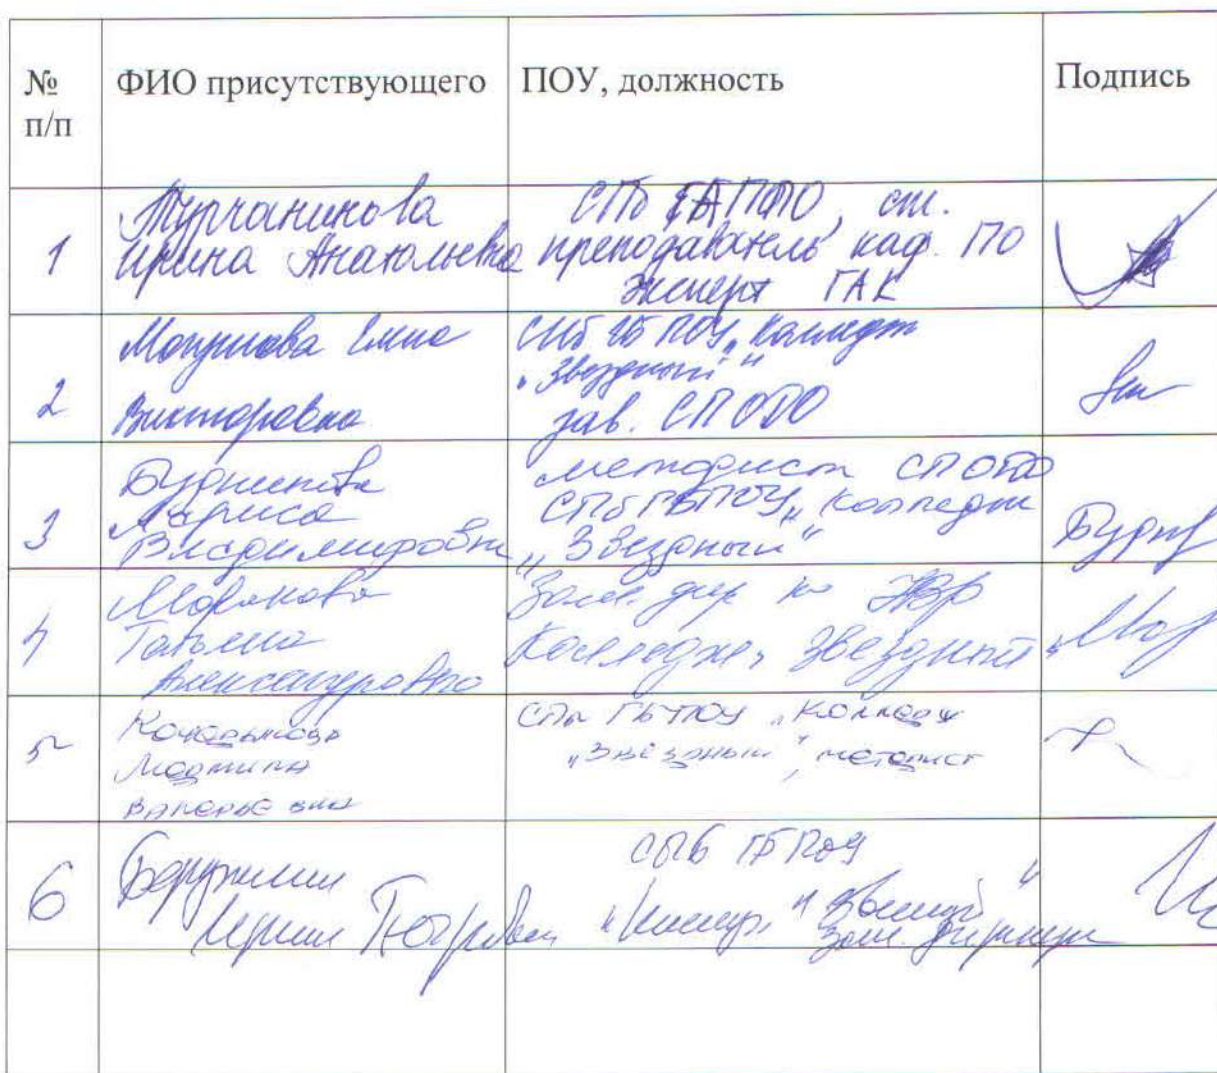 № п/п ФИО присутствующего ПОУ, должность Подпись
1 Турчанинова Ирина Анатольевна СПб ГАППО, ст. преподаватель каф. ПО эксперт ГАК
2 Викторовна СПб ГБ ПОУ „Колледж „Звездный" зав. СП ОДО
3 Лариса Владимировна методист СП ОДО СПб ГБПОУ „Колледж „Звездный" 
4 Морякова Татьяна Александровна Зам. дир по Колледж „Звездный"
5 Людмила Валерьевна СПб ГБПОУ „Колледж „Звёздный", методист
6 Петровна СПб ГБПОУ зам. директора